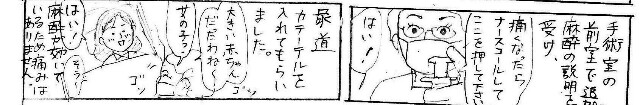 手術室の
前室で追加
麻酔の説明を
受け、
痛くなったら
ナースコールして
ここを押して下さい
はい！
尿道
カテーテルを
入れてもらい
ました。
大きい赤ちゃん
だねぇ〜
女の子？
はい！
そう！
麻酔が効いて
いるため痛みは
ありません